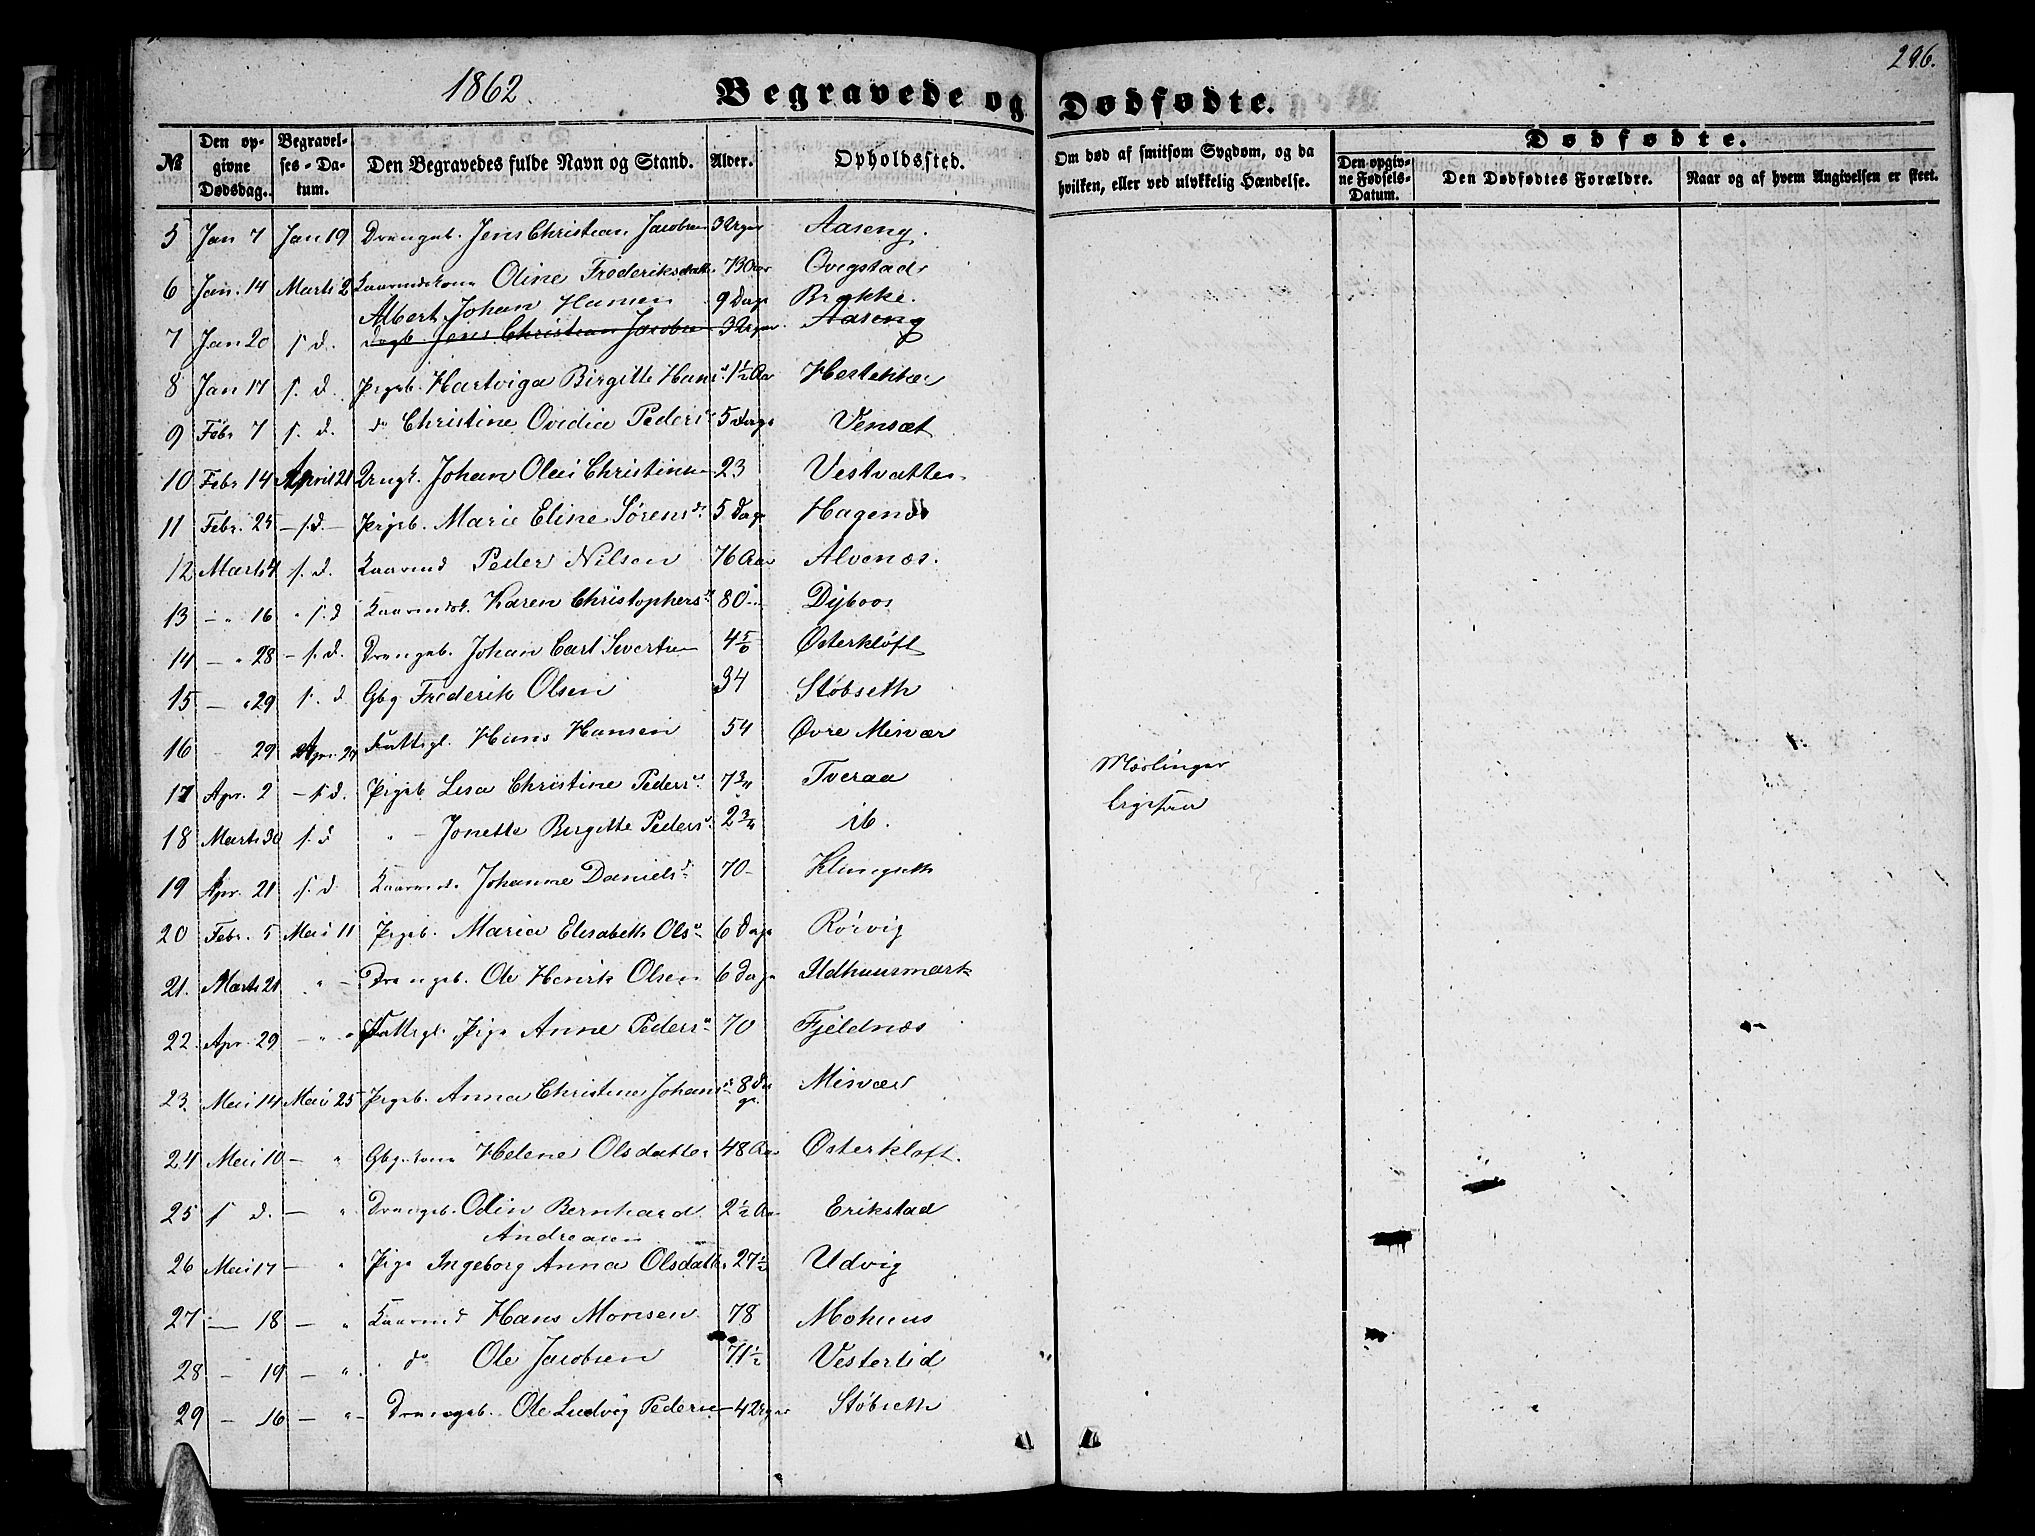 1862. Begravede og Dødfødte. 296.
Dødfødte.
№ Den opgivne Dødsdag. Begravelses-Datum. Den Begravedes fulde Navn og Stand. Alder. Opholdssted. Om død af smitsom Sygdom, og da hvilken, eller ved ulykkelig Hændelse. Den opgivne Fødsels-Datum. Den Dødfødtes Forældre. Naar og af hvem Angivelsen er skeet.
5 Jan 7 Jan 19 Drengeb. Jens Christian Jacobsen 3 Uger Aaseng.
6 Jan. 14 Marts 2 Kaarmdskone Oline Frederiksdatt. 73 Aar Qvigstad
Albert Johan Hansen 9 Dage Brække.
7 Jan 20 s. d. Drgb. Jens Christian Jacobsen 3 Uger. Aaseng
8 Jan 17 s. d. Pigeb. Hartviga Birgitte Hans d. 1½ Aar
9 Febr 7 s. d. do Christine Ovidia Peders d. 5 Dage Vensæt
10 Febr 14 April 21 Ungk. Johan Olai Christensen 23 Vestvatten
11 Febr. 25 — s. d. — Pigeb. Marie Eline Sørens d. 5 Dage Hagenæs
12 Marts 4 s. d. Kaarmd Peder Nilsen 76 Aar Alvenæs.
13 — " 16 " s. d Kaarmdsk. Karen Christophers d. 80 — Djboos
14 — " 28 — s. d. Drengeb. Johan Carl Sivertsen 4 5/6 Østerkløft
15 — " 29 s. d Gbg Frederik Olsen 34 Støbseth
16 29 Apr. 21 Fattigl. Hans Hansen 54 Øvre Misvær
17 Apr. 2 — s. d. Pigeb. Lesa Christine Peders d. 7 3/4 Tveraa Mæslinger
18 Marts 30 s. d " — Jonette Birgitte Peders d. 2 3/4 ib. ligesaa
19 Apr. 21 s. d. Kaarmds. Johanne Daniels d. 70 — Klungseth
20 Febr. 5 Mai 11 Pigeb. Maria Elisabeth Ols d. 6 Dage Rørvig
21. Marts 21 " — Drengeb. Ole Henrik Olsen 6 Dage Udhuusmark
22. Apr. 29 — " Fattigl. Pige Anne Peders d. 70 Fjeldnæs
23. Mai 14 Mai 25 Pigeb. Anna Christine Johans d. 8 Dage Misvær
24 Mai 10 — " Gbgskone Helene Olsdatter 48 Aar Østerkløft.
25 s. d. — " Drengeb. Odin Bernhard 2½ Aar Erikstad
Andreasen
26 Mai 17 — " Pige Ingeborg Anna Olsdatt. 27½ Udvig
27 — 18 — " Kaarmd Hans Monsen 78 Mohuus
28 — 19 — " do Ole Jacobsen 71½ Vesterlid
29 — 16 — " — Drengeb. Ole Ludvig Pedersen 4 Uger Støbseth